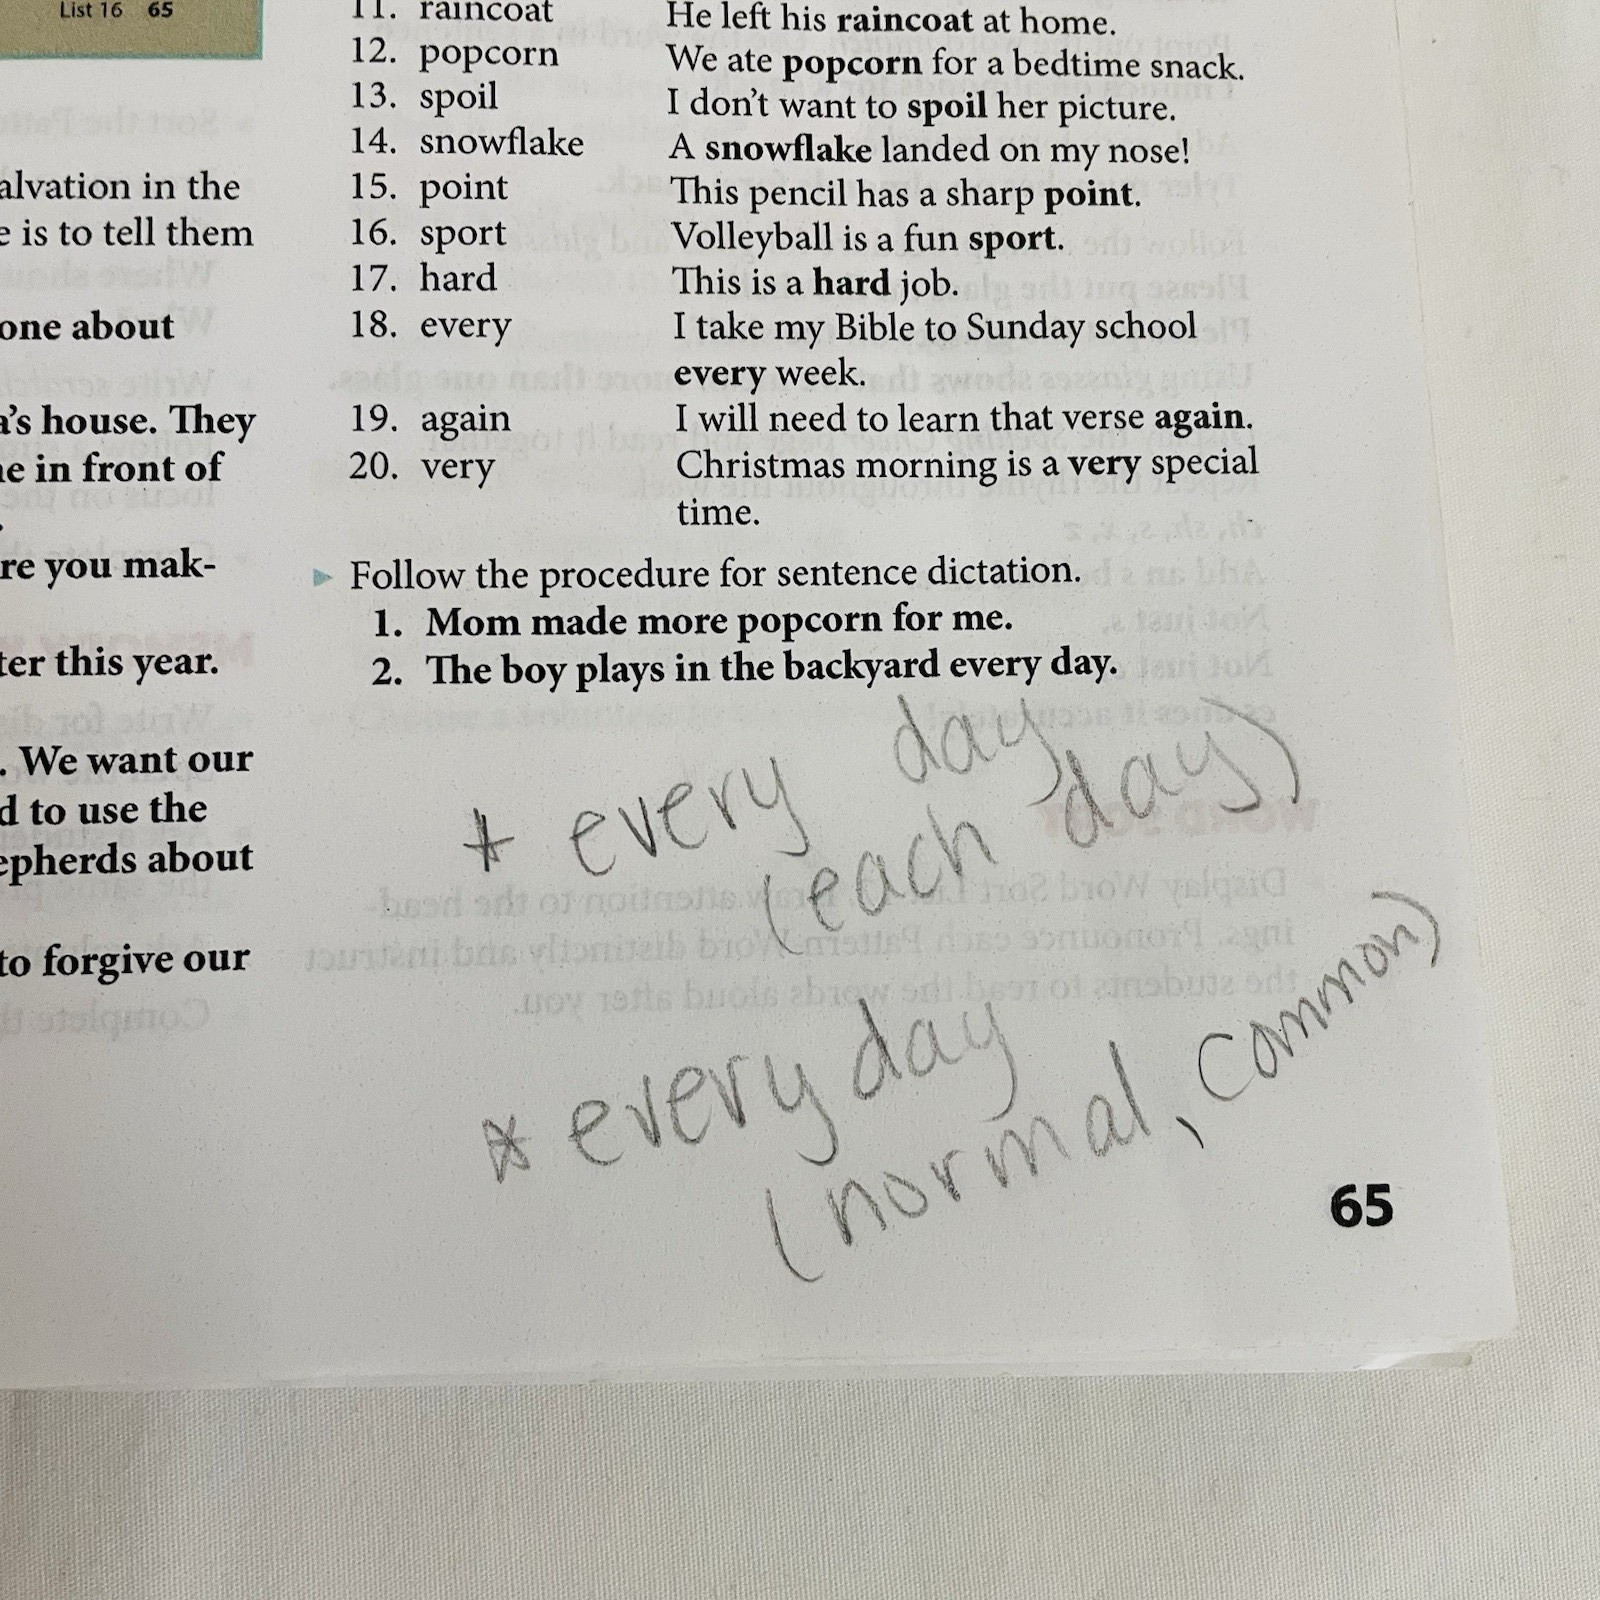 List 16 65
alvation in the
e is to tell them
one about
a's house. They
ne in front of
re you mak-
ter this year.
. We want our
d to use the
epherds about
to forgive our
11. raincoat He left his raincoat at home.
12. popcorn We ate popcorn for a bedtime snack.
13. spoil I don't want to spoil her picture.
14. snowflake A snowflake landed on my nose!
15. point This pencil has a sharp point.
16. sport Volleyball is a fun sport.
17. hard This is a hard job.
18. every I take my Bible to Sunday school
every week.
19. again I will need to learn that verse again.
20. very Christmas morning is a very special
time.
▶ Follow the procedure for sentence dictation.
1. Mom made more popcorn for me.
2. The boy plays in the backyard every day.
* every day
(each day)
* everyday
(normal, common)
65